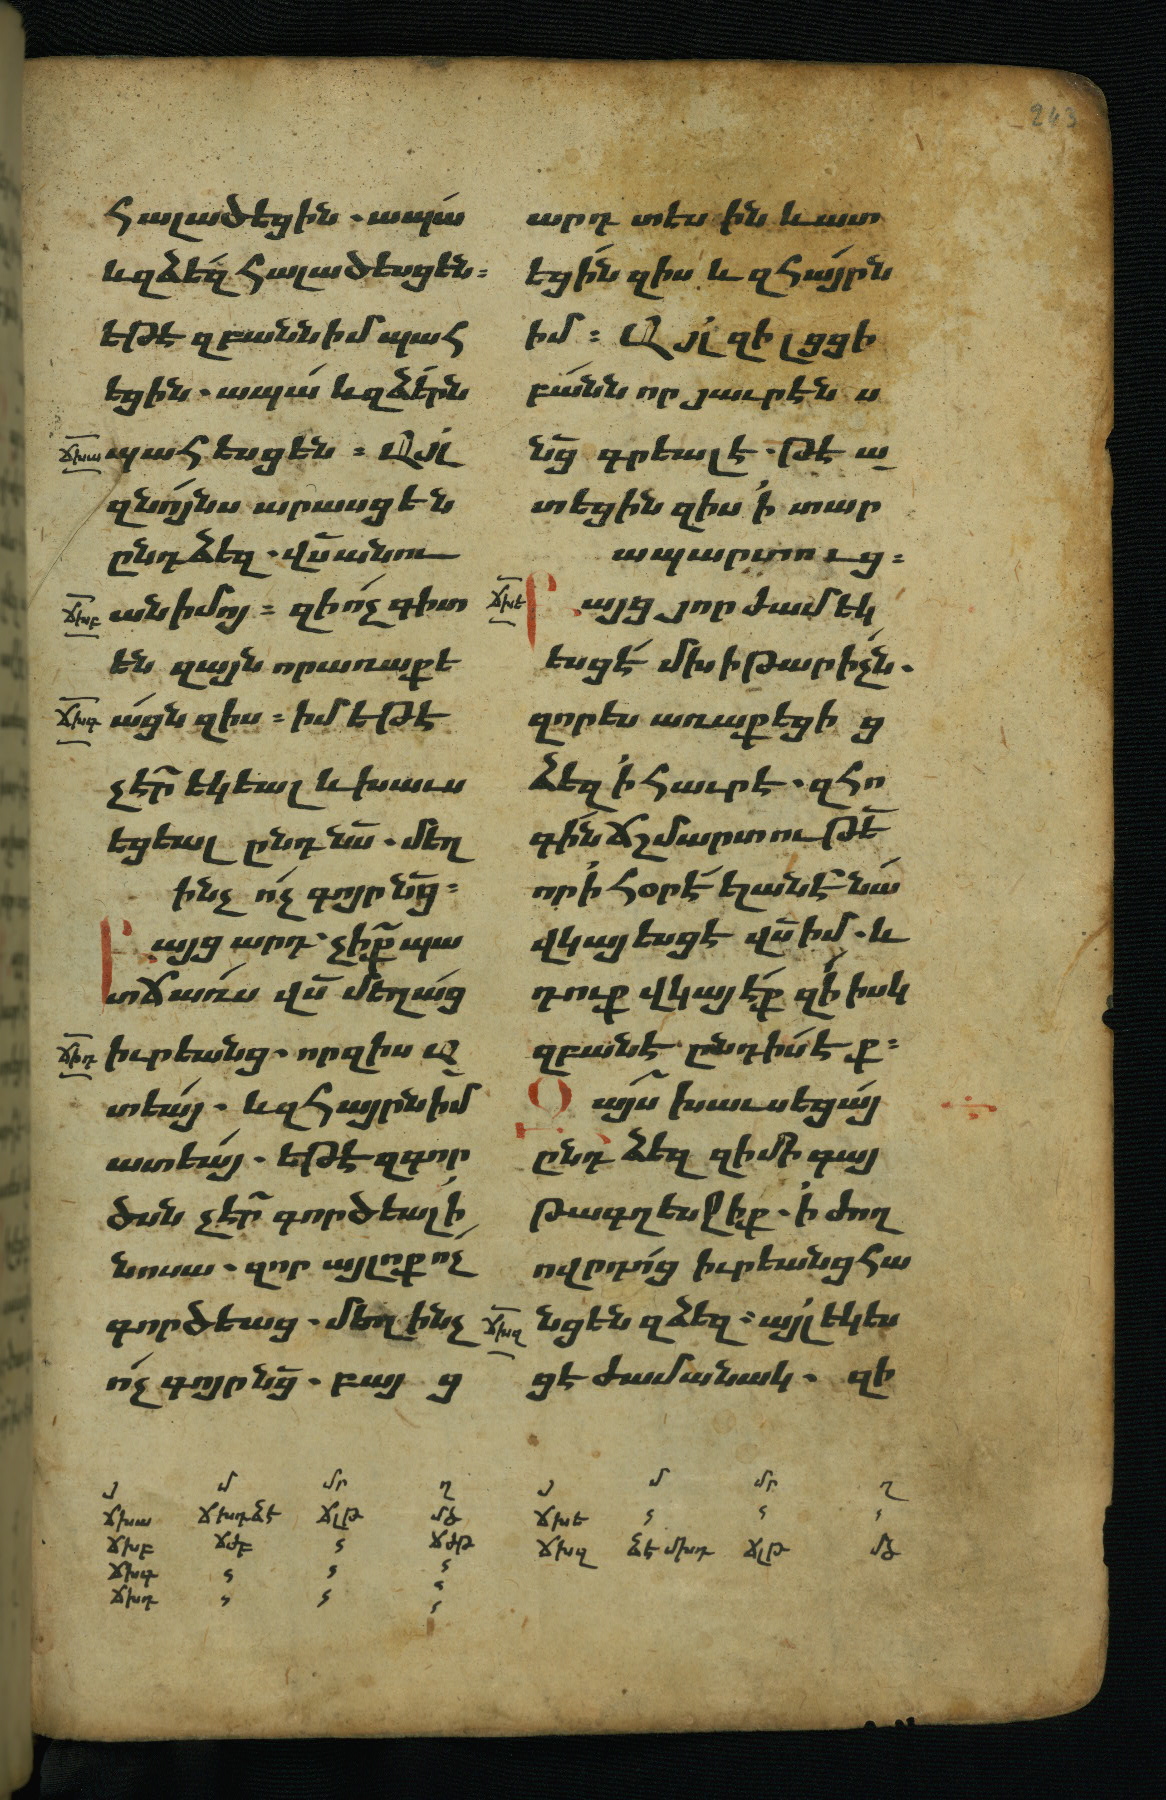 243
հալածեցին. ապա՛
և զձեզ հալածեսցեն։
եթէ զբանն իմ պահ
եցին. ապա՛ և զձերն
ճխա պահեսցեն։ Այլ
զնո՛յնս արասցեն
ընդ ձեզ. վս̃ անու
ճխբ ան իմոյ։ զի ո՛չ գիտ
են զայն որ առաքե
ճխգ ա՛ցն զիս։ իմ եթէ
չէր̃ եկեալ և խաւս
եցեալ ընդ նս̃. մեղ
ինչ ո՛չ գոյր նց̃։
Բայց արդ. չիք̃ պա
տճառս վս̃ մեղա՛ց
ճխդ իւրեանց. որ զիս ա
տեա՛յ. և զՀայրն իմ
ատեա՛յ. եթէ զգոր
ծսն չէր̃ գործեալ ի
նոսա. զոր այլոք ո՛չ
գործեաց. մեղ ինչ
ո՛չ գոյր նց̃. բայց
արդ տեսին և ատ
եցին զիս և զՀայրն
իմ։ Այլ զի լցցի
բանն որ յաւրէն ս
նց̃ գրեալ է. թէ ա
տեցին զիս ՛ի տար
ապարտուց։
ճխե Բայց յորժամ եկ
եսցէ մխիթարիչն.
զոր ես առաքեցից
ձեզ ՛ի հաւրէ. զհո
գին ճշմարտութէ̃
որ ՛ի հօրէ ելանէ. նա
վկայեսցէ վս̃ իմ. և
դուք վկայէք զի իսկ
զբանէ ընդ իս էք։
Զայս̃ խաւսեցայ
ընդ ձեզ զի մի գայ
թագղեսջիք. ՛ի ժող
ովրդո՛ց իւրեանց հա
ճխզ նցեն զձեզ։ այլ եկես
ցէ ժամանակ. զի
յ մ մր ղ
ճխա ճխդ ձէ ճլթ մձ
ճխբ ճժբ ճժթ
ճխգ
ճխդ
յ մ մր ղ
ճխե
ճխզ ձէ մխդ ճլթ մձ